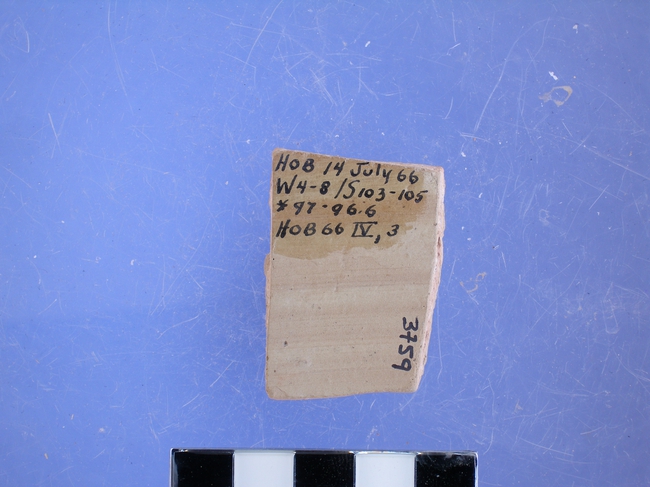 HOB 14 July 66
W4-8/S103-105
* 97-96.6
HOB 66 IV, 3
3759